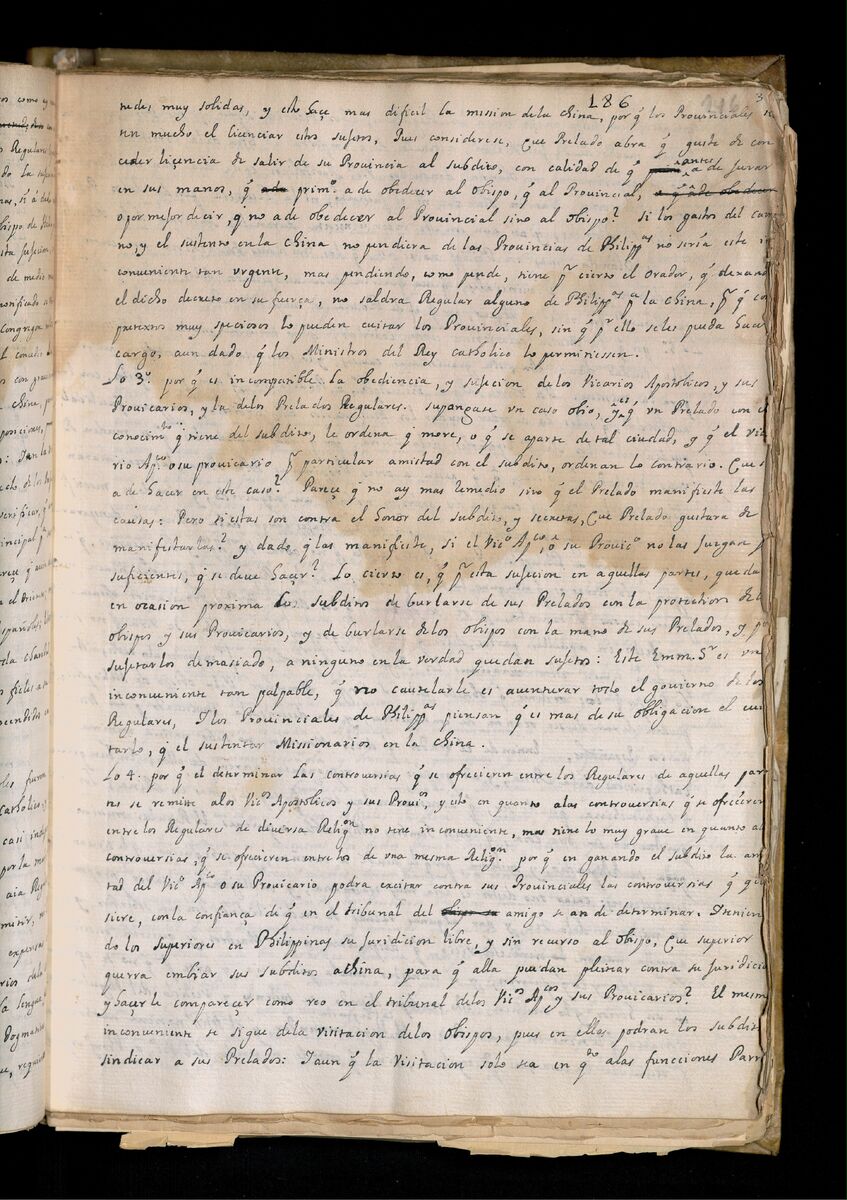 186 3
tudes muy solidas, y esto haçe mas dificil la mission dela China, por q̃ los Provinciales
ten mucho el licenciar estos sujetos, Pues considerese, Que Prelado abra q̃ guste de con
ceder liçencia de salir de su Provincia al subdito, con calidad de q̃ antes a de jurar
en sus manos, q̃ prim.º a de obedecer al obispo, q̃ al Provincial,
o por mejor decir, q̃ no a de obedecer al Provincial sino al obispo? si los gastos del cam
no, y el sustento en la China no pendiera de las Provincias de Philipp.as no seria este in
conueniente tan vrgente, mas pendiendo, como pende, tiene p.r cierto el orador, q̃ dexando
el dicho decreto en su fuerça, no saldra Regular alguno de Philipp.as p.a la China, p.r q̃ con
pretextos muy speciosos lo pueden euitar los Provinciales, sin q̃ p.r ello seles pueda hacer
cargo, aun dado q̃ los Ministros del Rey catholico lo permitiessen.
Lo 3.º por q̃ es incompatible la obediencia, y sujecion delos Vicarios Apostolicos, y sus
Prouicarios, y la delos Prelados Regulares. supongase vn caso obio, y es q̃ vn Prelado con el
conocim.to q̃ tiene del subdito, le ordena q̃ more, o q̃ se aparte de tal ciudad, y q̃ el vica
rio Ap.co o su prouicario p.r particular amistad con el subdito, ordenan lo contrario. Que s
a de haçer en este caso? Pareçe q̃ no ay mas remedio sino q̃ el Prelado manifieste las
causas: Pero si estas son contra el honor del subdito, y secretas, Que Prelado gustara de
manifestarlas? y dado q̃ las manifieste, si el Vic.º Ap.co, o su Prouic.º no las juzgan p
suficientes, q̃ se deve haçer? Lo cierto es, q̃ p.r esta sujecion en aquellas partes, quedan
en ocasion proxima los subditos de burlarse de sus Prelados con la protection del
obispos y sus Prouicarios, y de burlarse delos obispos con la mano de sus Prelados, y p.r
sujetarlos demasiado, a ninguno en la verdad quedan sujetos: Este Emm. S.r es vn
inconueniente tan palpable, q̃ no cautelarle es auenturar todo el gouierno de los
Regulares, I los Prouinciales de Philipp.as piensan q̃ es mas de su obligacion el eui
tarlo, q̃ el sustentar Missionarios en la China.
Lo 4. por q̃ el determinar las controuersias q̃ se ofrecieren entre los Regulares de aquellas par
tes se remite alos Vic.os Apostolicos y sus Proui.os, y esto en quanto alas controuersias q̃ se ofrecieren
entre los Regulares de diuersa Relig.on no tiene inconueniente, mas tiene lo muy graue en quanto al
controuersias, q̃ se ofrecieren entre los de vna mesma Relig.on por q̃ en ganando el subdito la amis
tad del Vic.º Ap.co o su Prouicario podra excitar contra sus Prouinciales las controuersias q̃ qui
siere, con la confiança de q̃ en el tribunal del amigo se an de determinar. I tenien
do los superiores en Philippinas su juridicion libre, y sin recurso al obispo, Que superior
querra embiar sus subditos a China, para q̃ alla puedan pleitear contra su juridicio
y haçerle compareçer como reo en el tribunal delos Vic.os Ap.cos y sus Prouicarios? El mesm
inconueniente se sigue dela visitacion delos obispos, pues en ellas podran los subdit
sindicar a sus Prelados: I aun q̃ la visitacion solo sea en q.to alas funciones Parro